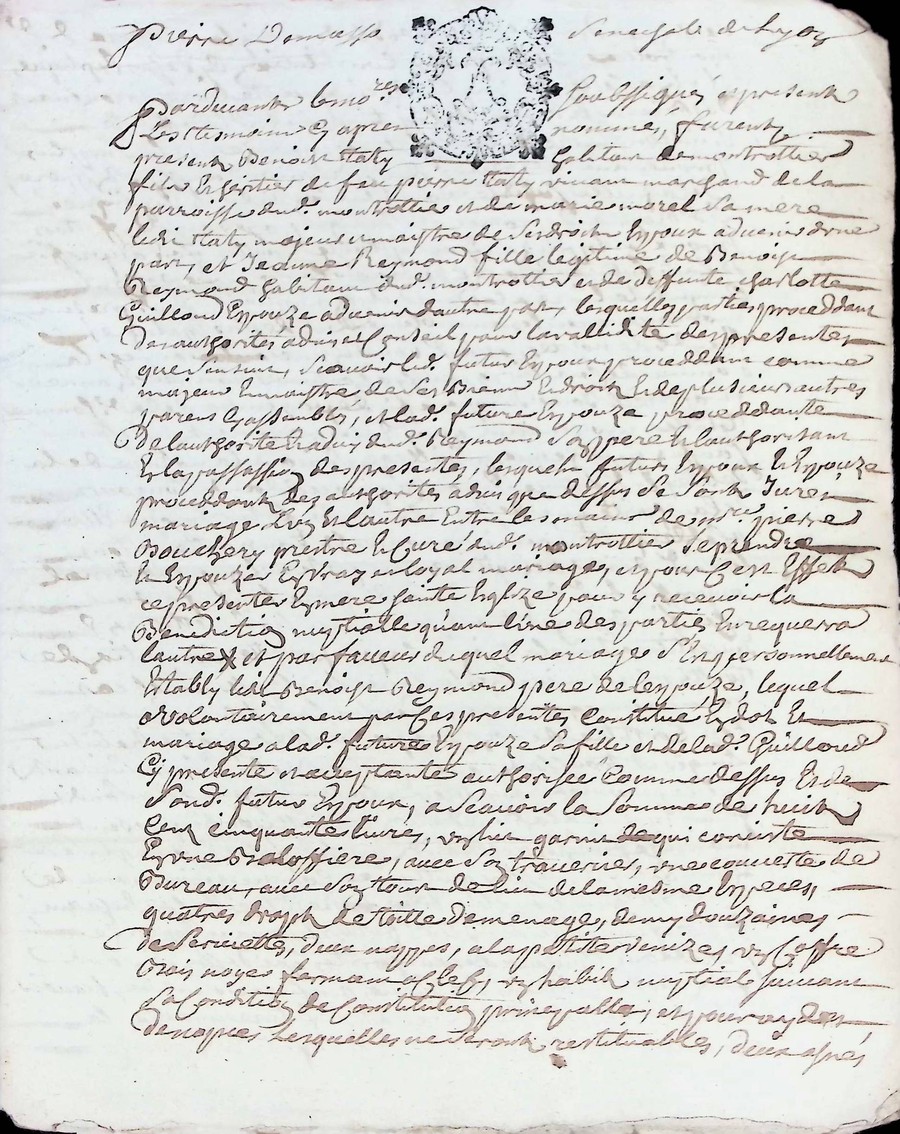 Pierre Demasso Senechal de Lyon
Pardevant le no.re soubssigné et present
Les tesmoins cy apres nommés, furent
present Benoist Italy habitant de montrottier
fils et heritier de feu pierre Italy vivant marchand de la
parroisse dud. montrottier et de marie morel sa mere
ledit Italy majeur et maistre de ses droits Espoux advenir d'une
part, et Jeanne Reymond fille legitime de Benoist
Reymond habitant dud. montrottier et de deffunte charlotte
Guilloud Espouze advenir d'autre part, lesquelles parties proceddant
des authorités advis et Conseil pour la vallidité des presentes
que s'ensuit, Scavoir led. futur Espoux proceddant comme
majeur et maistre de ses Biens et droits et de plusieurs autres
parens Ez assemblés, et lad. future Espouze proceddante
de l'authorité et advis dud. Reymond son pere et l'authorisant
et la passassion des presentes, lesquels futurs Espoux et Espouze
proceddant des authorités advis que dessus se sont Jurés
mariage l'un et l'autre Entre les mains de m.re pierre
Bouchery prestre et Curé dud. montrottier se prendre
et Espouzer En vray et loyal mariage, et pour C'est Effet
ce presenter En mere Sainte Eglize pour y recevoir la
Benediction nuptialle quant l'une des parties En requerra
lautre X et par faveur duquel mariage s'est personnellement
Estably led. Benoist Reymond pere de l'espouze, lequel
volontairement par Ces presentes Constitué En dot Et
mariage a lad. future Espouze sa fille et de lad. Guilloud
Cy presente et acceptante authorisée Comme dessus Et de
Sond. futur Espoux, a Scavoir la Somme de huit
Cent cinquante livres, un lit garni de qui consiste
En une Baloffiere, avec son traversier, une couverte de
Bureau, avec son tour de lit de la mesme Especes,
quatres draps de toille de menage, demy douzaines
de serviette, deux nappes, a la petitte venizes un Coffre
bois noyer fermant a Clefs un habit nuptial suivant
sa Condition de Constitution principalle, et pour aydes
de nopces Lesquelles ne seront restituables, deux asnés